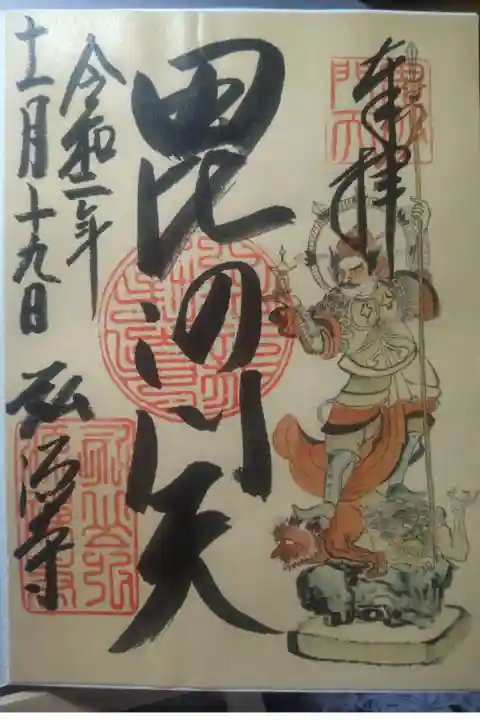 奉拝
毘沙門天
令和二年
十一月十九日
弘法寺